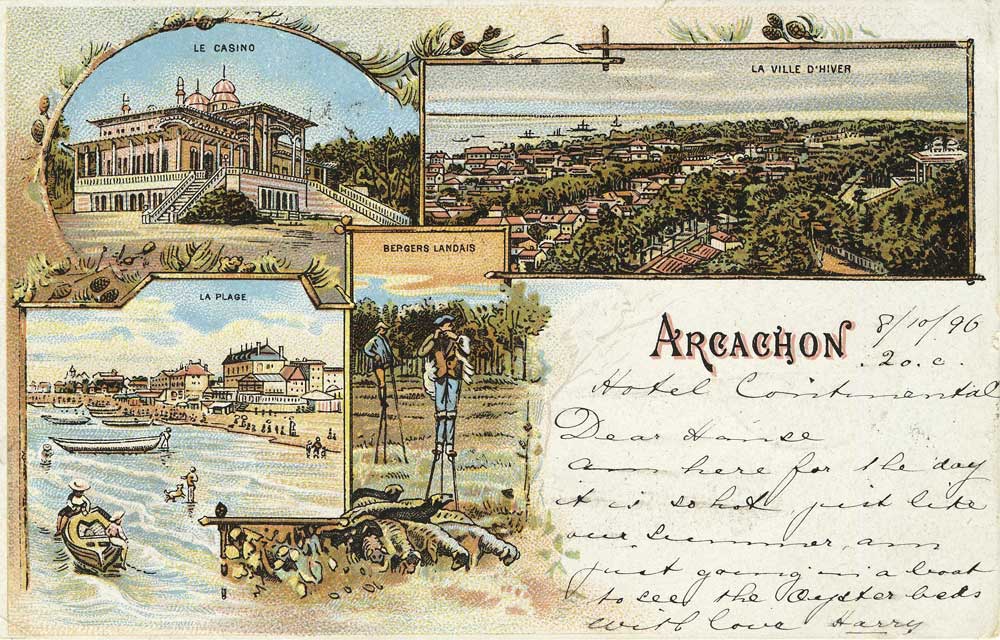 LE CASINO
LA VILLE D'HIVER
BERGERS LANDAIS
LA PLAGE
ARCACHON
8/10/96
20.c.
Hotel Continental
Dear
am here for the day
it is so hot just like
our Summer, am
just going in a boat
to see the Oyster beds
with love Harry